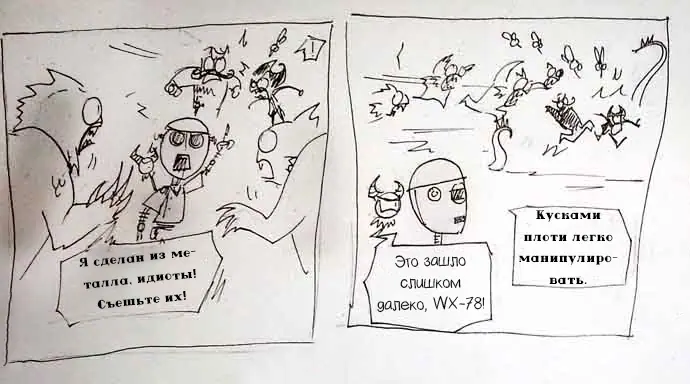 !
Я сделан из ме-
талла, идиоты!
Съешьте их!
Это зашло
слишком
далеко, WX-78!
Кусками
плоти легко
манипулиро-
вать.